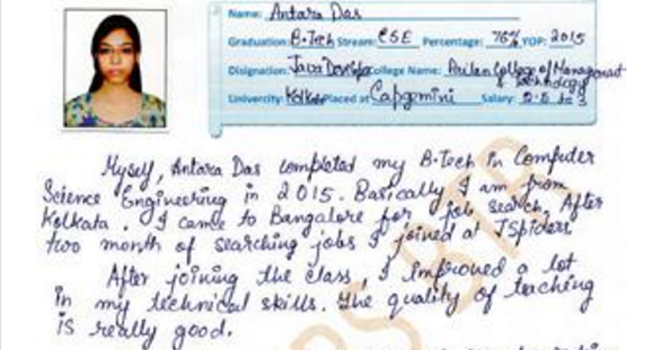 Name: Antara Das
Graduation: B.Tech Stream: CSE Percentage: 76% YOP: 2015
Disignation: Java Developer College Name: Pailan College of Managemnat & Technology
Univercity: Kolkata Placed at Capgemini Salary:
Myself, Antara Das completed my B.Tech in Computer
Science Engineering in 2015. Basically I am from
Kolkata. I came to Bangalore for job search. After
two month of searching jobs I joined at JSpiders
After joining the class, I improved a lot
in my technical skills. The quality of teaching
is really good.